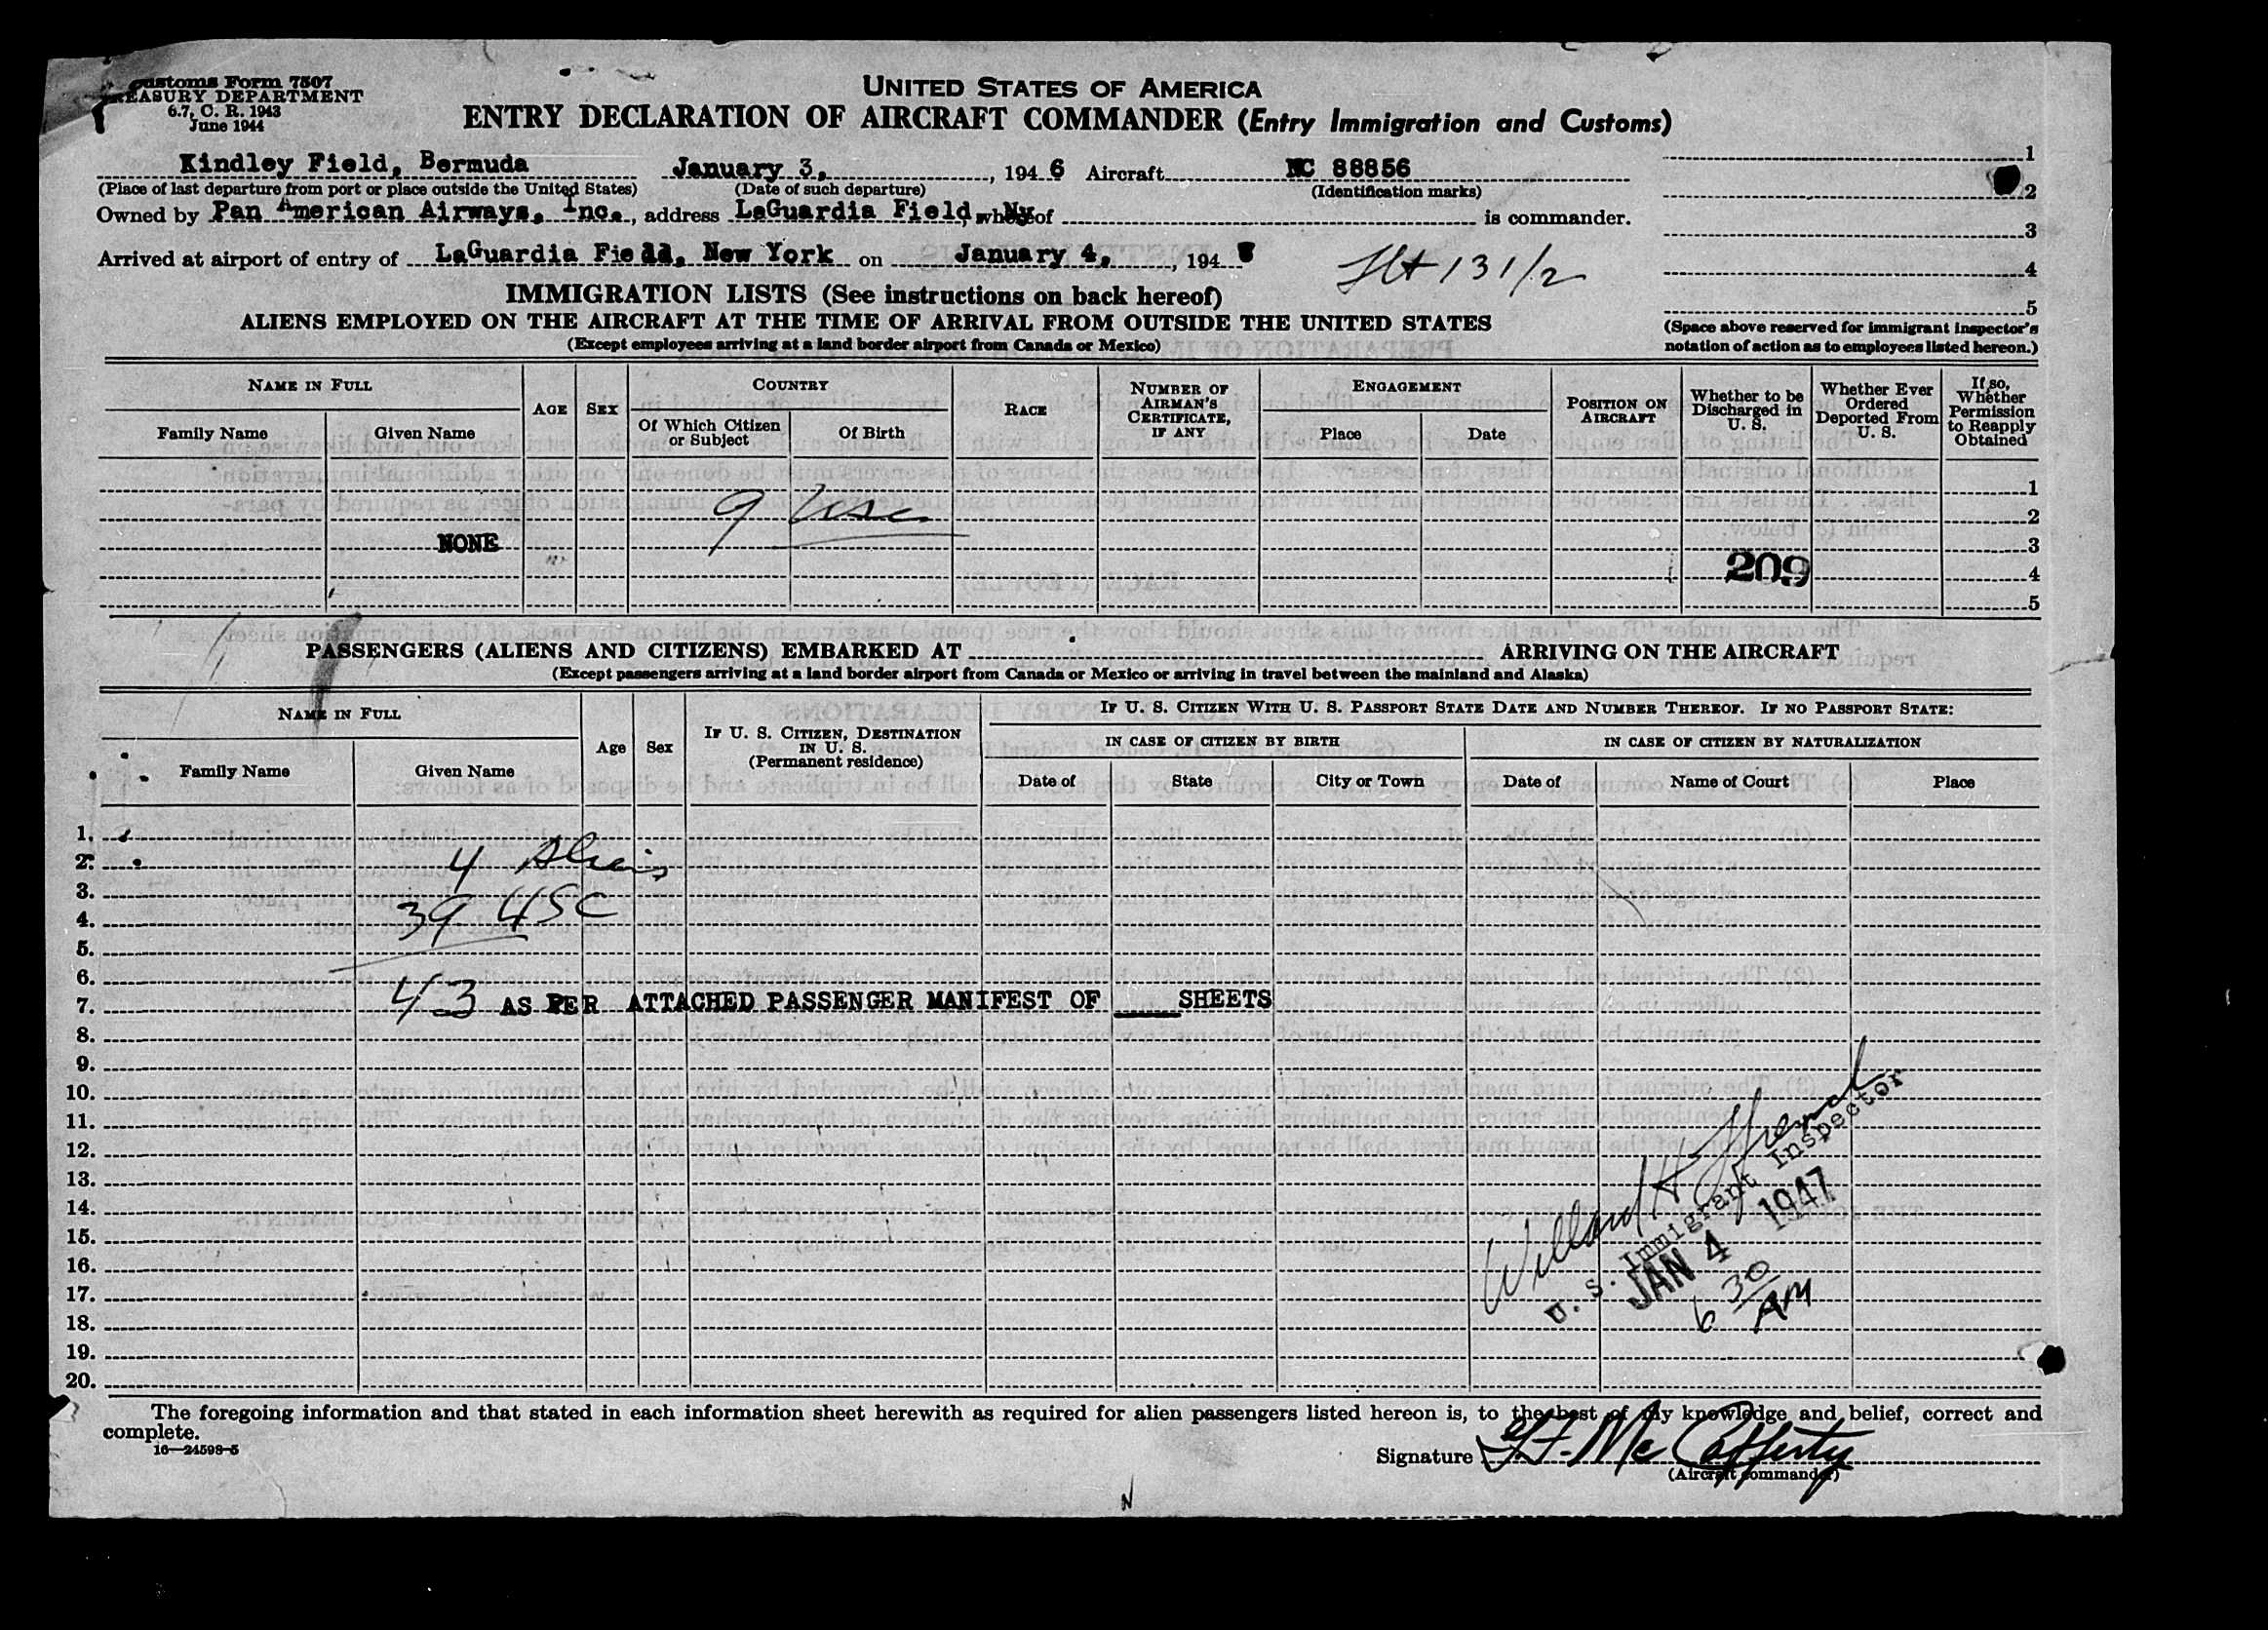 Customs Form 7507
TREASURY DEPARTMENT
6.7, C. R. 1943
June 1944
UNITED STATES OF AMERICA
ENTRY DECLARATION OF AIRCRAFT COMMANDER (Entry Immigration and Customs)
Kindley Field, Bermuda January 3, 1946 Aircraft NC 88856
(Place of last departure from port or place outside the United States) (Date of such departure) (Identification marks)
Owned by Pan American Airways, Inc., address LaGuardia Field, NY whereof is commander.
Arrived at airport of entry of LaGuardia Field, New York on January 4, 194
Flt 131/2
1
2
3
4
5
(Space above reserved for immigrant inspector's
notation of action as to employees listed hereon.)
IMMIGRATION LISTS (See instructions on back hereof)
ALIENS EMPLOYED ON THE AIRCRAFT AT THE TIME OF ARRIVAL FROM OUTSIDE THE UNITED STATES
(Except employees arriving at a land border airport from Canada or Mexico)
NAME IN FULL
Family Name Given Name
AGE SEX
COUNTRY
Of Which Citizen or Subject Of Birth
RACE
NUMBER OF AIRMAN'S CERTIFICATE, IF ANY
ENGAGEMENT
Place Date
POSITION ON AIRCRAFT
Whether to be Discharged in U. S.
Whether Ever Ordered Deported From U. S.
If so, Whether Permission to Reapply Obtained
1
9 usc 2
NONE 3
209 4
5
PASSENGERS (ALIENS AND CITIZENS) EMBARKED AT ARRIVING ON THE AIRCRAFT
(Except passengers arriving at a land border airport from Canada or Mexico or arriving in travel between the mainland and Alaska)
NAME IN FULL
Family Name Given Name
Age Sex
IF U. S. CITIZEN, DESTINATION IN U. S. (Permanent residence)
IF U. S. CITIZEN WITH U. S. PASSPORT STATE DATE AND NUMBER THEREOF. IF NO PASSPORT STATE:
IN CASE OF CITIZEN BY BIRTH
Date of State City or Town
IN CASE OF CITIZEN BY NATURALIZATION
Date of Name of Court Place
1.
2. 4 Aliens
3.
4. 39 USC
5.
6.
7. 43 AS PER ATTACHED PASSENGER MANIFEST OF SHEETS
8.
9.
10.
11.
12.
13.
14.
15.
16.
17.
18.
19.
20.
Willard H
U. S. Immigrant Inspector
JAN 4 1947
6 30 AM
The foregoing information and that stated in each information sheet herewith as required for alien passengers listed hereon is, to the best of my knowledge and belief, correct and
complete.
16—24598-5
Signature F. McCafferty
(Aircraft commander)
N